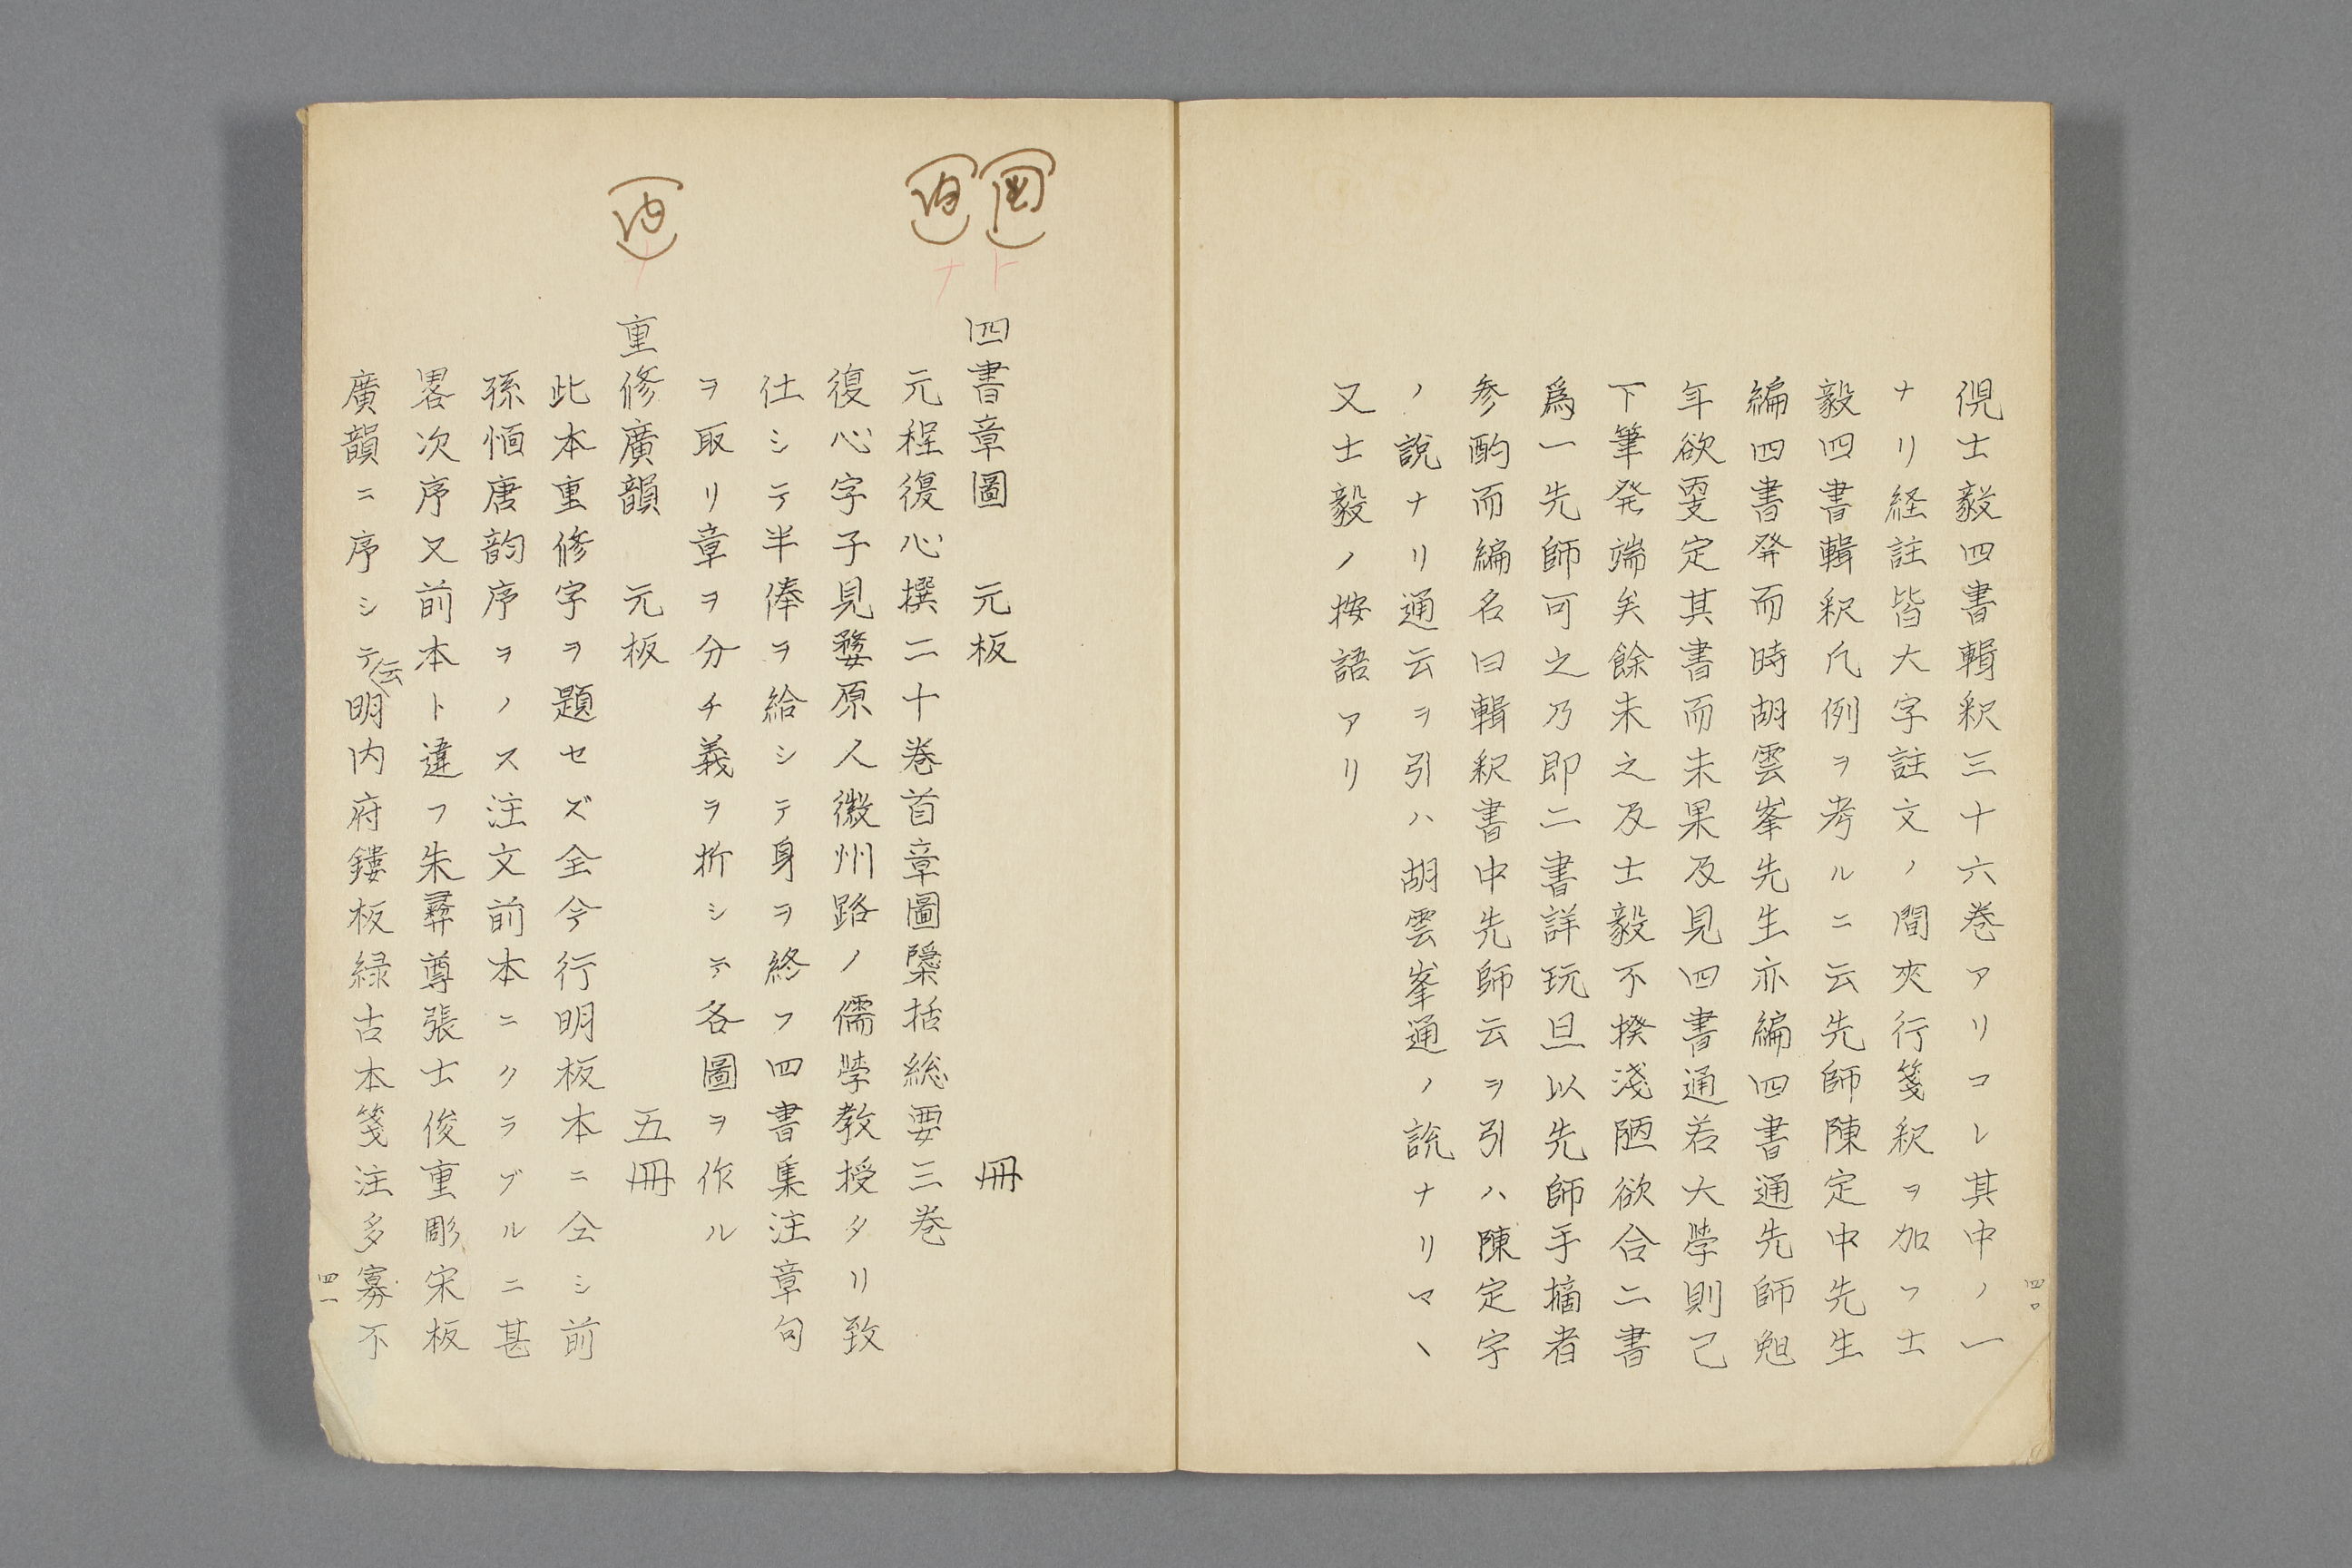 倪士毅四書輯釈三十六巻アリコレ其中ノ一
ナリ経註皆大字註文ノ間夾行箋釈ヲ加フ士
毅四書輯釈凡例ヲ考ルニ云先師陳定中先生
編四書発而時胡雲峯先生亦編四書通先師
年欲更定其書而未果及見四書通若大學則已
下筆発端矣餘未之及士毅不揆淺陋欲合二書
爲一先師可之乃即二書詳玩且以先師手摘者
参酌而編名曰輯釈書中先師云ヲ引ハ陳定宇
ノ說ナリ通云ヲ引ハ胡雲峯通ノ說ナリマヽ
又士毅ノ按語アリ
四〇
四書章圖　元板　冊
元程復心撰二十巻首章圖隱栝総要三巻
復心字子見婺原人徽州路ノ儒學教授タリ致
仕シテ半俸ヲ給シテ身ヲ終フ四書集注章句
ヲ取リ章ヲ分チ義ヲ折シテ各圖ヲ作ル
重修廣韻　元板　五冊
此本重修字ヲ題セズ全今行明板本ニ仝シ前
孫愐唐韵序ヲノス注文前本ニクラブルニ甚
畧次序又前本ト違フ朱彛尊張士俊重彫宋板
廣韻ニ序シテ云明内府鏤板緑古本箋注多寡不
四一
内
図
内
ト
ナ